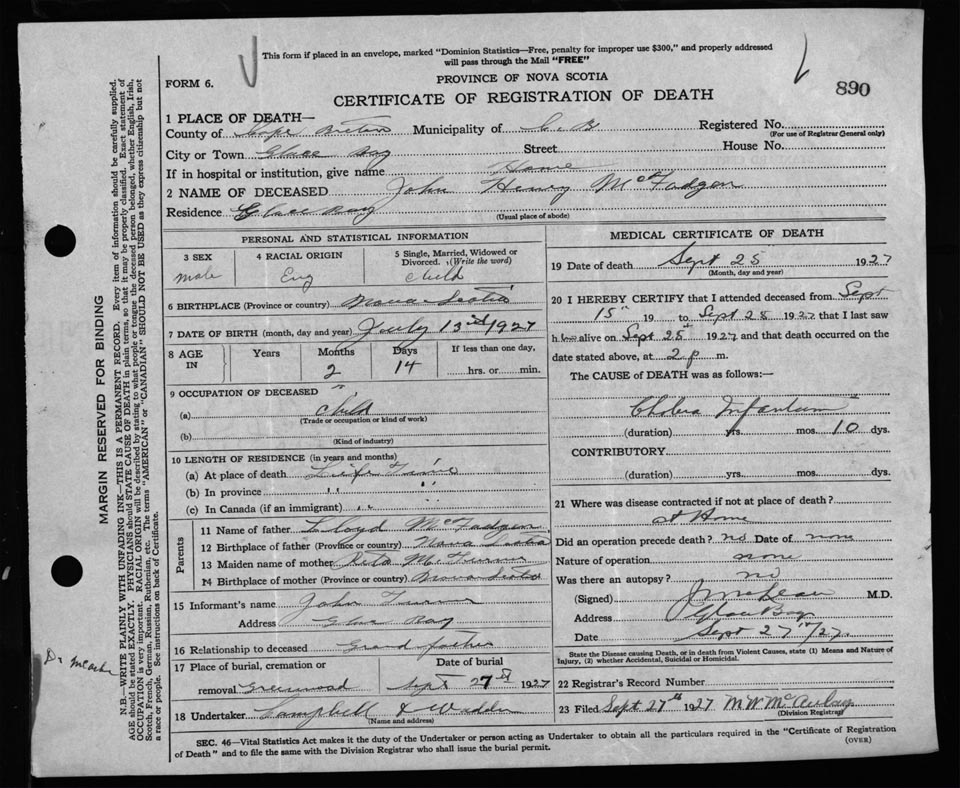 This form if placed in an envelope, marked "Dominion Statistics—Free, penalty for improper use $300," and properly addressed
will pass through the Mail "FREE"
FORM 6.
PROVINCE OF NOVA SCOTIA
890
CERTIFICATE OF REGISTRATION OF DEATH
1 PLACE OF DEATH—
County of Cape Breton Municipality of C. B Registered No.
(For use of Registrar General only)
City or Town Glace Bay Street House No.
If in hospital or institution, give name Home
2 NAME OF DECEASED John Henry McFadgen
Residence Glace Bay
(Usual place of abode)
PERSONAL AND STATISTICAL INFORMATION
3 SEX
male
4 RACIAL ORIGIN
Eng
5 Single, Married, Widowed or
Divorced. (Write the word)
child
6 BIRTHPLACE (Province or country) Nova Scotia
7 DATE OF BIRTH (month, day and year) July 13 1927
8 AGE IN
Years
Months
2
Days
14
If less than one day,
hrs. or min.
9 OCCUPATION OF DECEASED
(a) Child
(Trade or occupation or kind of work)
(b)
(Kind of industry)
10 LENGTH OF RESIDENCE (in years and months)
(a) At place of death Life Time
(b) In province " "
(c) In Canada (if an immigrant) "
Parents
11 Name of father Lloyd McFadgen
12 Birthplace of father (Province or country) Nova Scotia
13 Maiden name of mother
14 Birthplace of mother (Province or country) Nova Scotia
15 Informant's name John
Address Glace Bay
16 Relationship to deceased Grand father
17 Place of burial, cremation or
removal Greenwood
Date of burial
Sept 27 1927
18 Undertaker Campbell &
(Name and address)
MEDICAL CERTIFICATE OF DEATH
19 Date of death Sept 25 1927
(Month, day and year)
20 I HEREBY CERTIFY that I attended deceased from Sept
15" 19 to Sept 28 1927 that I last saw
h alive on Sept 25th 1927 and that death occurred on the
date stated above, at 2 p m.
The CAUSE of DEATH was as follows:—
Cholera Infantum
(duration) yrs. mos. 10 dys.
CONTRIBUTORY
(duration) yrs. mos. dys.
21 Where was disease contracted if not at place of death?
at Home
Did an operation precede death? no Date of none
Nature of operation none
Was there an autopsy? no
(Signed) M.D.
Address Glace Bay
Date Sept 27th/27
State the Disease causing Death, or in death from Violent Causes, state (1) Means and Nature of
Injury, (2) whether Accidental, Suicidal or Homicidal.
22 Registrar's Record Number
23 Filed Sept 27th 1927 M W McAulay
(Division Registrar)
SEC. 46—Vital Statistics Act makes it the duty of the Undertaker or person acting as Undertaker to obtain all the particulars required in the "Certificate of Registration
of Death" and to file the same with the Division Registrar who shall issue the burial permit.
(OVER)
MARGIN RESERVED FOR BINDING
N.B.—WRITE PLAINLY WITH UNFADING INK—THIS IS A PERMANENT RECORD. Every item of information should be carefully supplied.
AGE should be stated EXACTLY. PHYSICIANS should STATE CAUSE OF DEATH in plain terms, so that it may be properly classified. Exact statement of
OCCUPATION is very important. RACIAL ORIGIN will be described by stating to what people or tongue the deceased person belonged, whether English, Irish,
Scotch, French, German, Russian, Ruthenian, etc. The terms "AMERICAN" or "CANADIAN" SHOULD NOT BE USED as they express citizenship but not
a race or people. See instructions on back of Certificate.
Dr